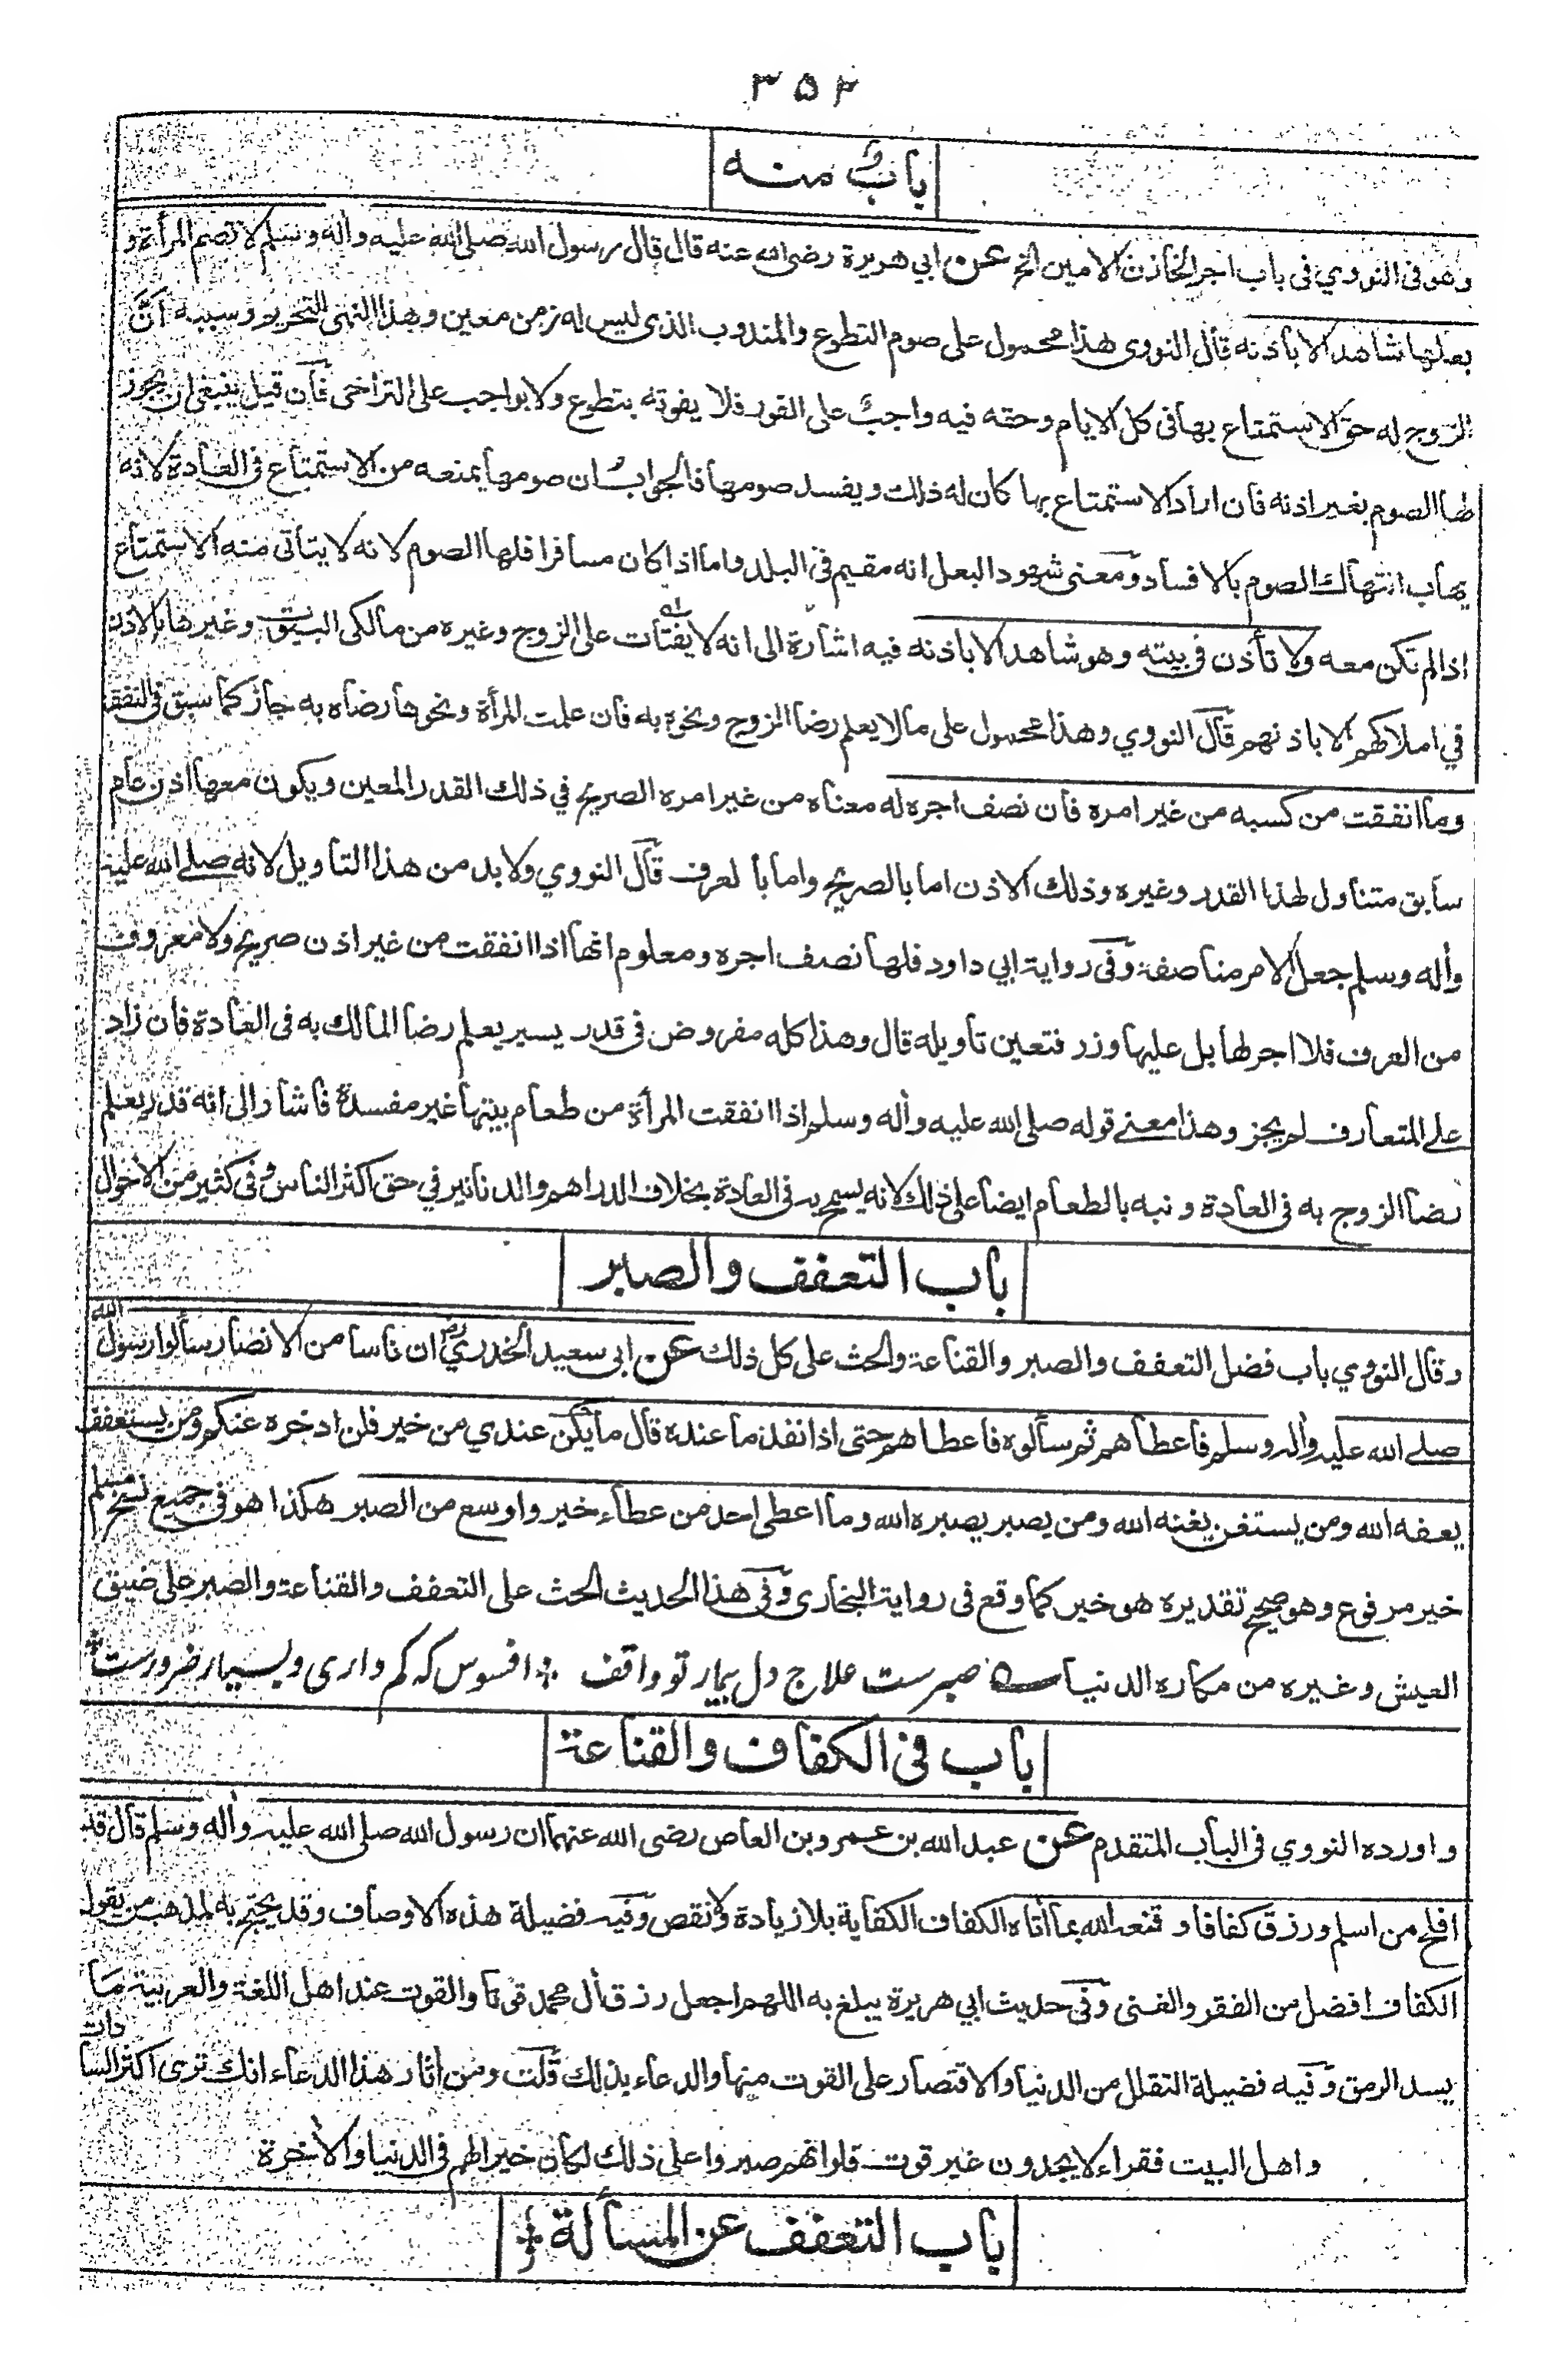 ۳۵۴
باب منه
وهو في النووي في باب اجر الخازن الامين الخ عن ابي هريرة رضي الله عنه قال قال رسول الله صلى الله عليه وأله وسلم لا تصم المرأة و
بعلها شاهد الا باذنه قال النووى هذا محمول على صوم التطوع والمندوب الذى ليس له زمن معين وهذا النهى للتحريم وسببه انَّ
الزوج له حق الاستمتاع بها فى كل الايام وحقه فيه واجبٌ على الفور فلا يفوته بتطوع ولا بواجب على التراخى فان قيل ينبغى ان يجوز
لها الصوم بغير اذنه فان اراد الاستمتاع بها كان له ذلك ويفسد صومها فالجوابُ ان صومها يمنعه من الاستمتاع فى العادة لانه
يهاب انتهاك الصوم بالافساد ومعنى شهود البعل انه مقيم فى البلد واما اذا كان مسافرا فلها الصوم لانه لا يتأتى منه الاستمتاع
اذا لم تكن معه ولا تأذن فى بيته وهو شاهد الا باذنه فيه اشارة الى انه لا يفتات على الزوج وغيره من مالكى البيوت وغيرها بالاذن
في املاكهم الا باذنهم قال النووي وهذا محمول على ما لا يعلم رضا الزوج ونحوه به فان علمت المرأة ونحوها رضاه به جاز كما سبق فى النفقة
وما انفقت من كسبه من غير امره فان نصف اجره له معناه من غير امره الصريح في ذلك القدر المعين ويكون معها اذن عام
سابق متناول لهذا القدر وغيره وذلك الاذن اما بالصريح واما بالعرف قال النووي ولا بد من هذا التأويل لانه صلى الله عليه
وأله وسلم جعل الامر مناصفة وفى رواية ابي داود فلها نصف اجره ومعلوم انها اذا انفقت من غير اذن صريح ولا معروف
من العرف فلا اجر لها بل عليها وزر فتعين تأويله قال وهذا كله مفروض فى قدر يسير يعلم رضا المالك به فى العادة فان زاد
على المتعارف لم يجز وهذا معنے قوله صلى الله عليه وأله وسلم اذا انفقت المرأة من طعام بيتها غير مفسدة فاشار الى انه قدر يعلم
رضا الزوج به فى العادة ونبه بالطعام ايضا على ذلك لانه يسمح به فى العادة بخلاف الدراهم والدنانير في حق اكثر الناس وفى كثير من الأحوال
باب التعفف والصبر
وقال النووي باب فضل التعفف والصبر والقناعة والحث على كل ذلك عن ابى سعيد الخدري رض ان ناسا من الانصار سألوا رسول الله
صلى الله عليه وأله وسلم فاعطاهم ثم سألوه فاعطاهم حتى اذا نفد ما عنده قال ما يكن عندي من خير فلن ادخره عنكم ومن يستعفف
يعفه الله ومن يستغن يغنه الله ومن يصبر يصبره الله وما اعطى احد من عطاء خير واوسع من الصبر هكذا هو فى جميع نسخ مسلم
خير مرفوع وهو صحيح تقديره هو خير كما وقع فى رواية البخارى وفى هذا الحديث الحث على التعفف والقناعة والصبر على ضيق
العيش وغيره من مكاره الدنيا ؎ صبرست علاج دل بيمار تو واقف ؞ افسوس كه كم دارى وبسيار ضرورست
باب فى الكفاف والقناعة
واورده النووي فى الباب المتقدم عن عبد الله بن عمرو بن العاص رضى الله عنهما ان رسول الله صلى الله عليه وأله وسلم قال قد
افلح من اسلم ورزق كفافا وقنعه الله بما أتاه الكفاف الكفاية بلا زيادة ولا نقص وفيه فضيلة هذه الاوصاف وقد يحتج به لمذهب من يقول
الكفاف افضل من الفقر والغنى وفى حديث ابي هريرة يبلغ به اللهم اجعل رزق أل محمد قوتا والقوت عند اهل اللغة والعربية ما
يسد الرمق وفيه فضيلة التقلل من الدنيا والاقتصار على القوت منها والدعاء بذلك قلت ومن أثار هذا الدعاء انك ترى اكثر السادات
واهل البيت فقراء لا يجدون غير قوت فلو انهم صبروا على ذلك لكان خيرا لهم فى الدنيا والأخرة
باب التعفف عن المسألة